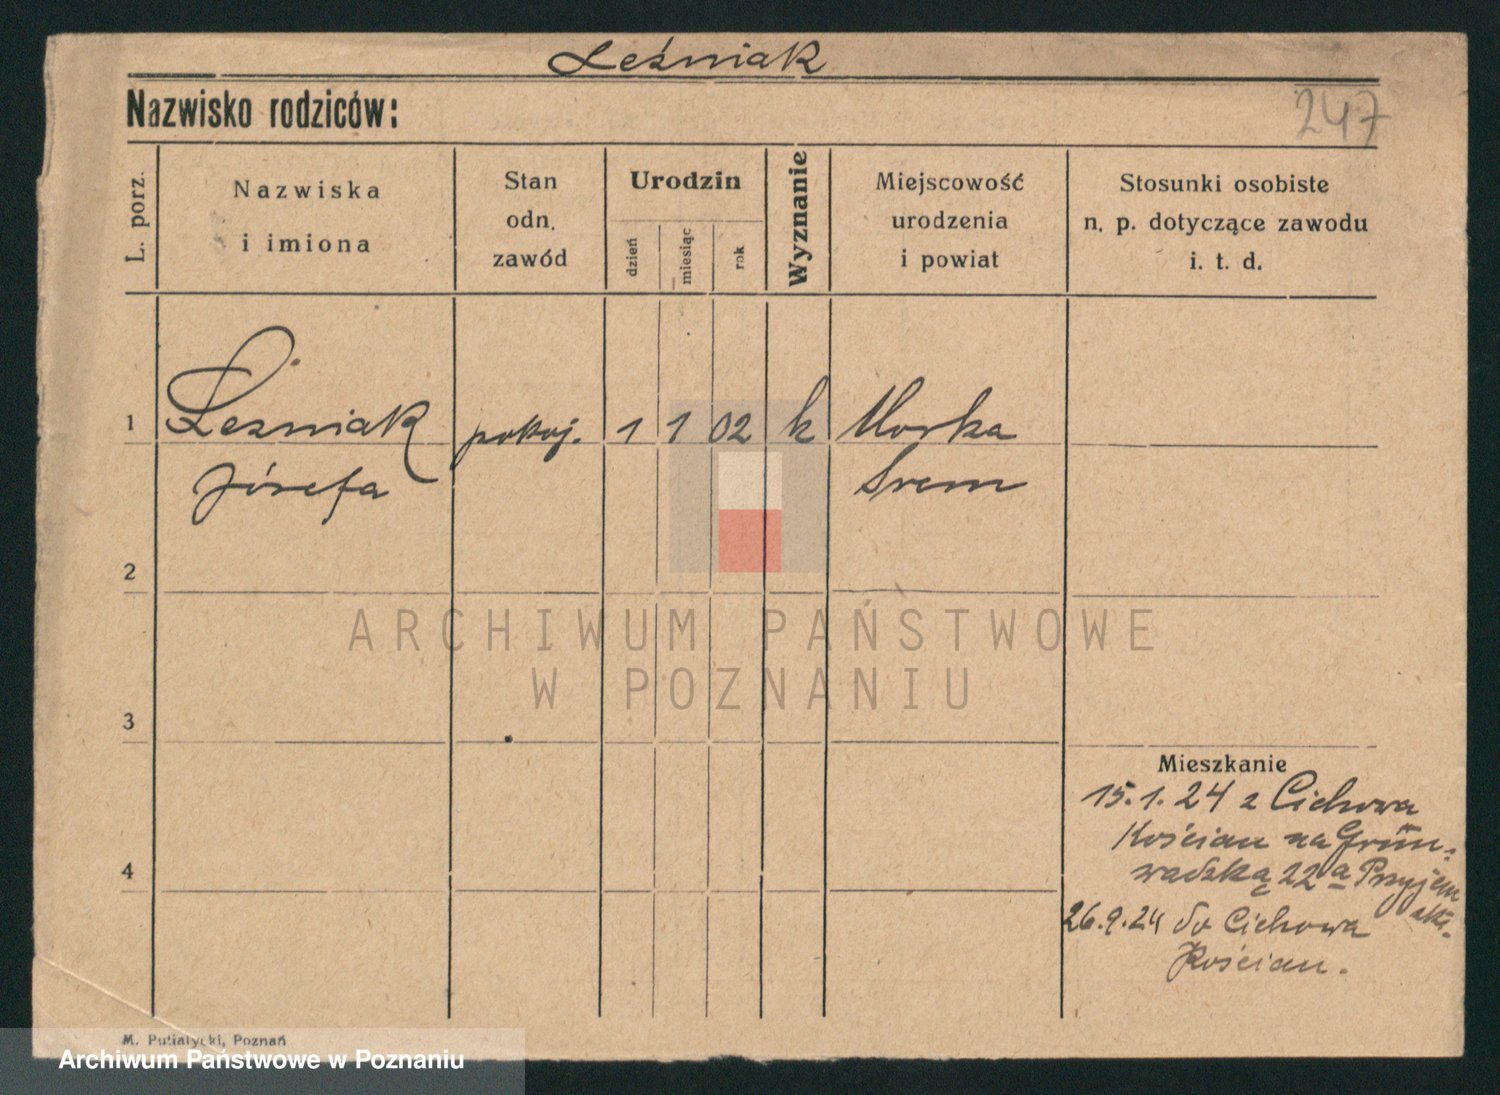 Leśniak
Nazwisko rodziców:
247
L. porz.
Nazwiska
i imiona
Stan
odn.
zawód
Urodzin
dzień
miesiąc
rok
Wyznanie
Miejscowość
urodzenia
i powiat
Stosunki osobiste
n. p. dotyczące zawodu
i. t. d.
1
Leśniak pokoj. 1 1 02 k Morka
Józefa Srem
2
ARCHIWUM PAŃSTWOWE
W POZNANIU
3
Mieszkanie
15.1.24 z Cichowa
Kościan na Grün-
wadzką 22a Przyjem
ski.
4
26.9.24 do Cichowa
Kościan.
M. Putiatycki, Poznań
Archiwum Państwowe w Poznaniu